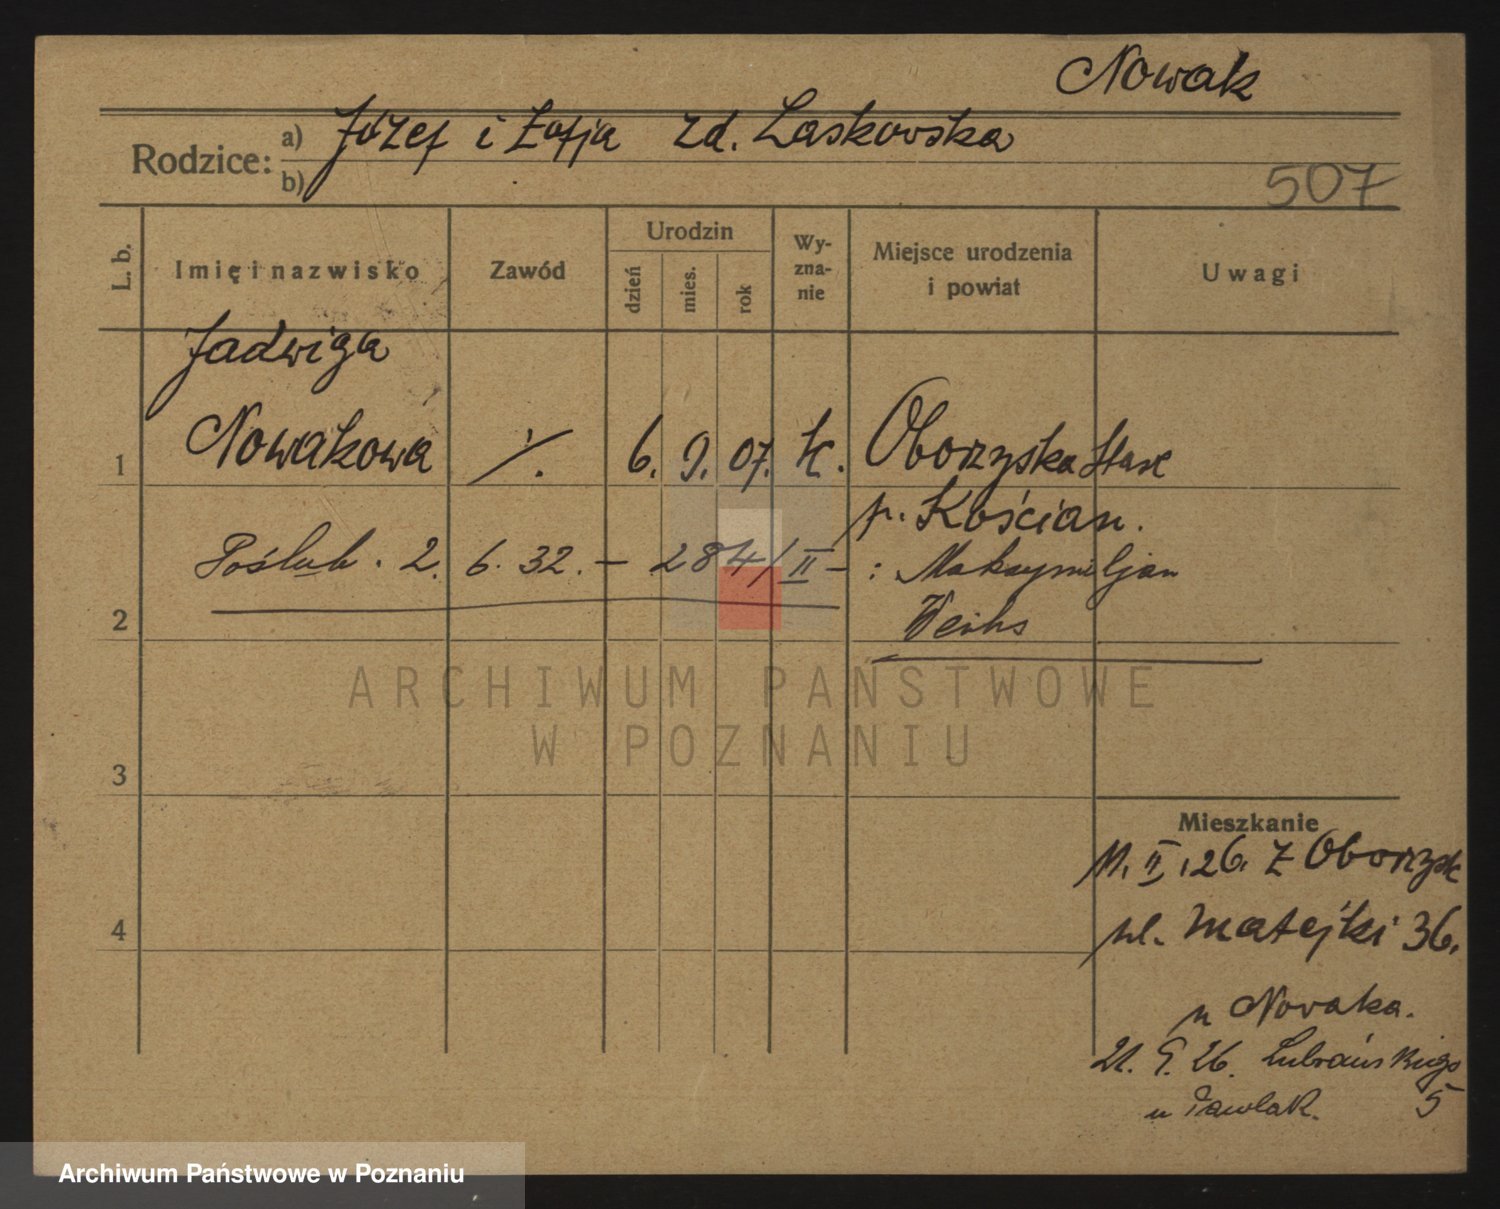 Nowak
Rodzice: a) Józef i Zofja zd. Laskowska
b)
507
L. b.
Imię i nazwisko
Zawód
Urodzin
dzień
mies.
rok
Wy-
zna-
nie
Miejsce urodzenia
i powiat
Uwagi
Jadwiga
1 Nowakowa ./. 6. 9. 07. k. Oborzyska Stare
p. Kościan.
Poślub. 2. 6. 32. – 284/II – : Maksymiljan
2 Weihs
ARCHIWUM PAŃSTWOWE
W POZNANIU
3
Mieszkanie
11. II. 26. z Oborzysk
4 ul. Matejki 36.
u Nowaka.
21. 9. 26. Lubrańskiego
u Pawlak. 5
Archiwum Państwowe w Poznaniu